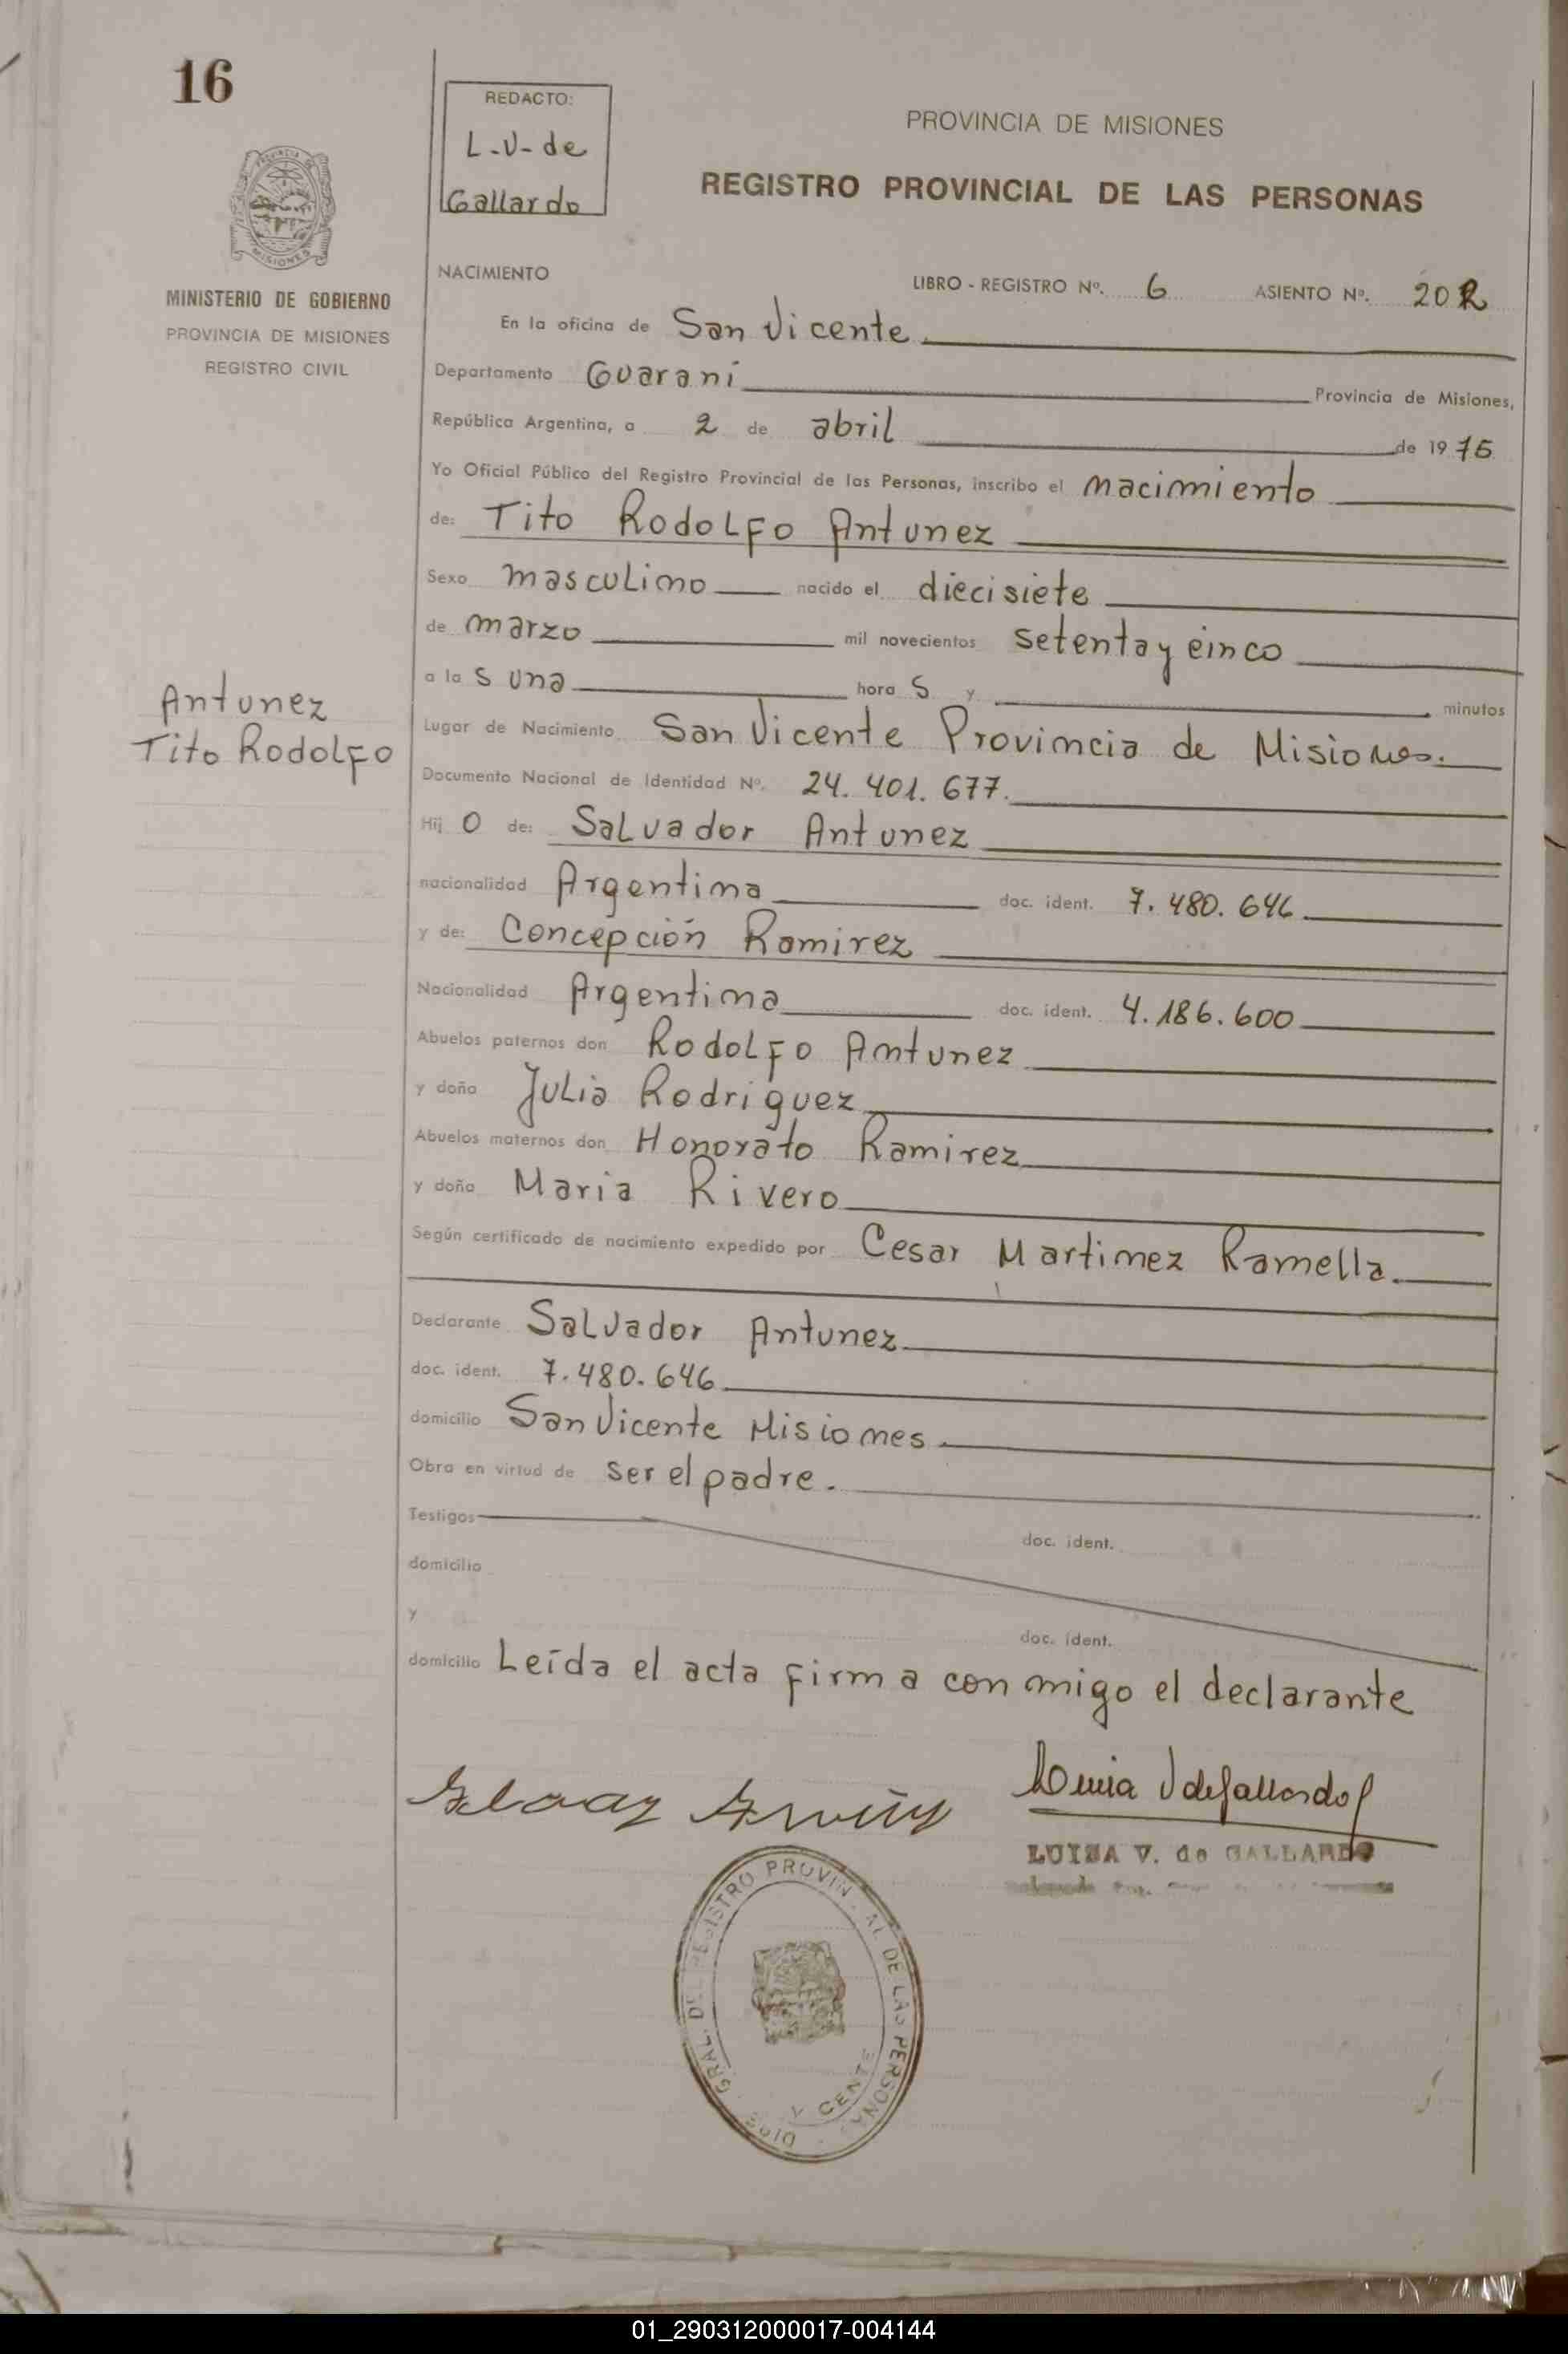 16
REDACTO:
L-V-de
Gallardo
PROVINCIA DE MISIONES
REGISTRO PROVINCIAL DE LAS PERSONAS
MISIONES
MINISTERIO DE GOBIERNO
PROVINCIA DE MISIONES
REGISTRO CIVIL
NACIMIENTO LIBRO - REGISTRO Nº. 6 ASIENTO Nº. 202
En la oficina de San Vicente
Departamento Guarani Provincia de Misiones,
República Argentina, a 2 de abril de 1975
Yo Oficial Público del Registro Provincial de las Personas, inscribo el nacimiento
de: Tito Rodolfo Antunez
Sexo masculino nacido el diecisiete
de marzo mil novecientos setenta y cinco
a la s una hora s y minutos
Antunez
Tito Rodolfo
Lugar de Nacimiento San Vicente Provincia de Misiones.
Documento Nacional de Identidad Nº. 24.401.677.
Hij o de: Salvador Antunez
nacionalidad Argentina doc. ident. 7.480.646
y de: Concepción Ramirez
Nacionalidad Argentina doc. ident. 4.186.600
Abuelos paternos don Rodolfo Antunez
y doña Julia Rodriguez
Abuelos maternos don Honorato Ramirez
y doña Maria Rivero
Según certificado de nacimiento expedido por Cesar Martinez Ramella.
Declarante Salvador Antunez
doc. ident. 7.480.646
domicilio San Vicente Misiones
Obra en virtud de ser el padre.
Testigos doc. ident.
domicilio
y doc. ident.
domicilio Leída el acta firma conmigo el declarante
LUISA V. de GALLARDO
GRAL. DEL REGISTRO DE LAS
01_290312000017-004144